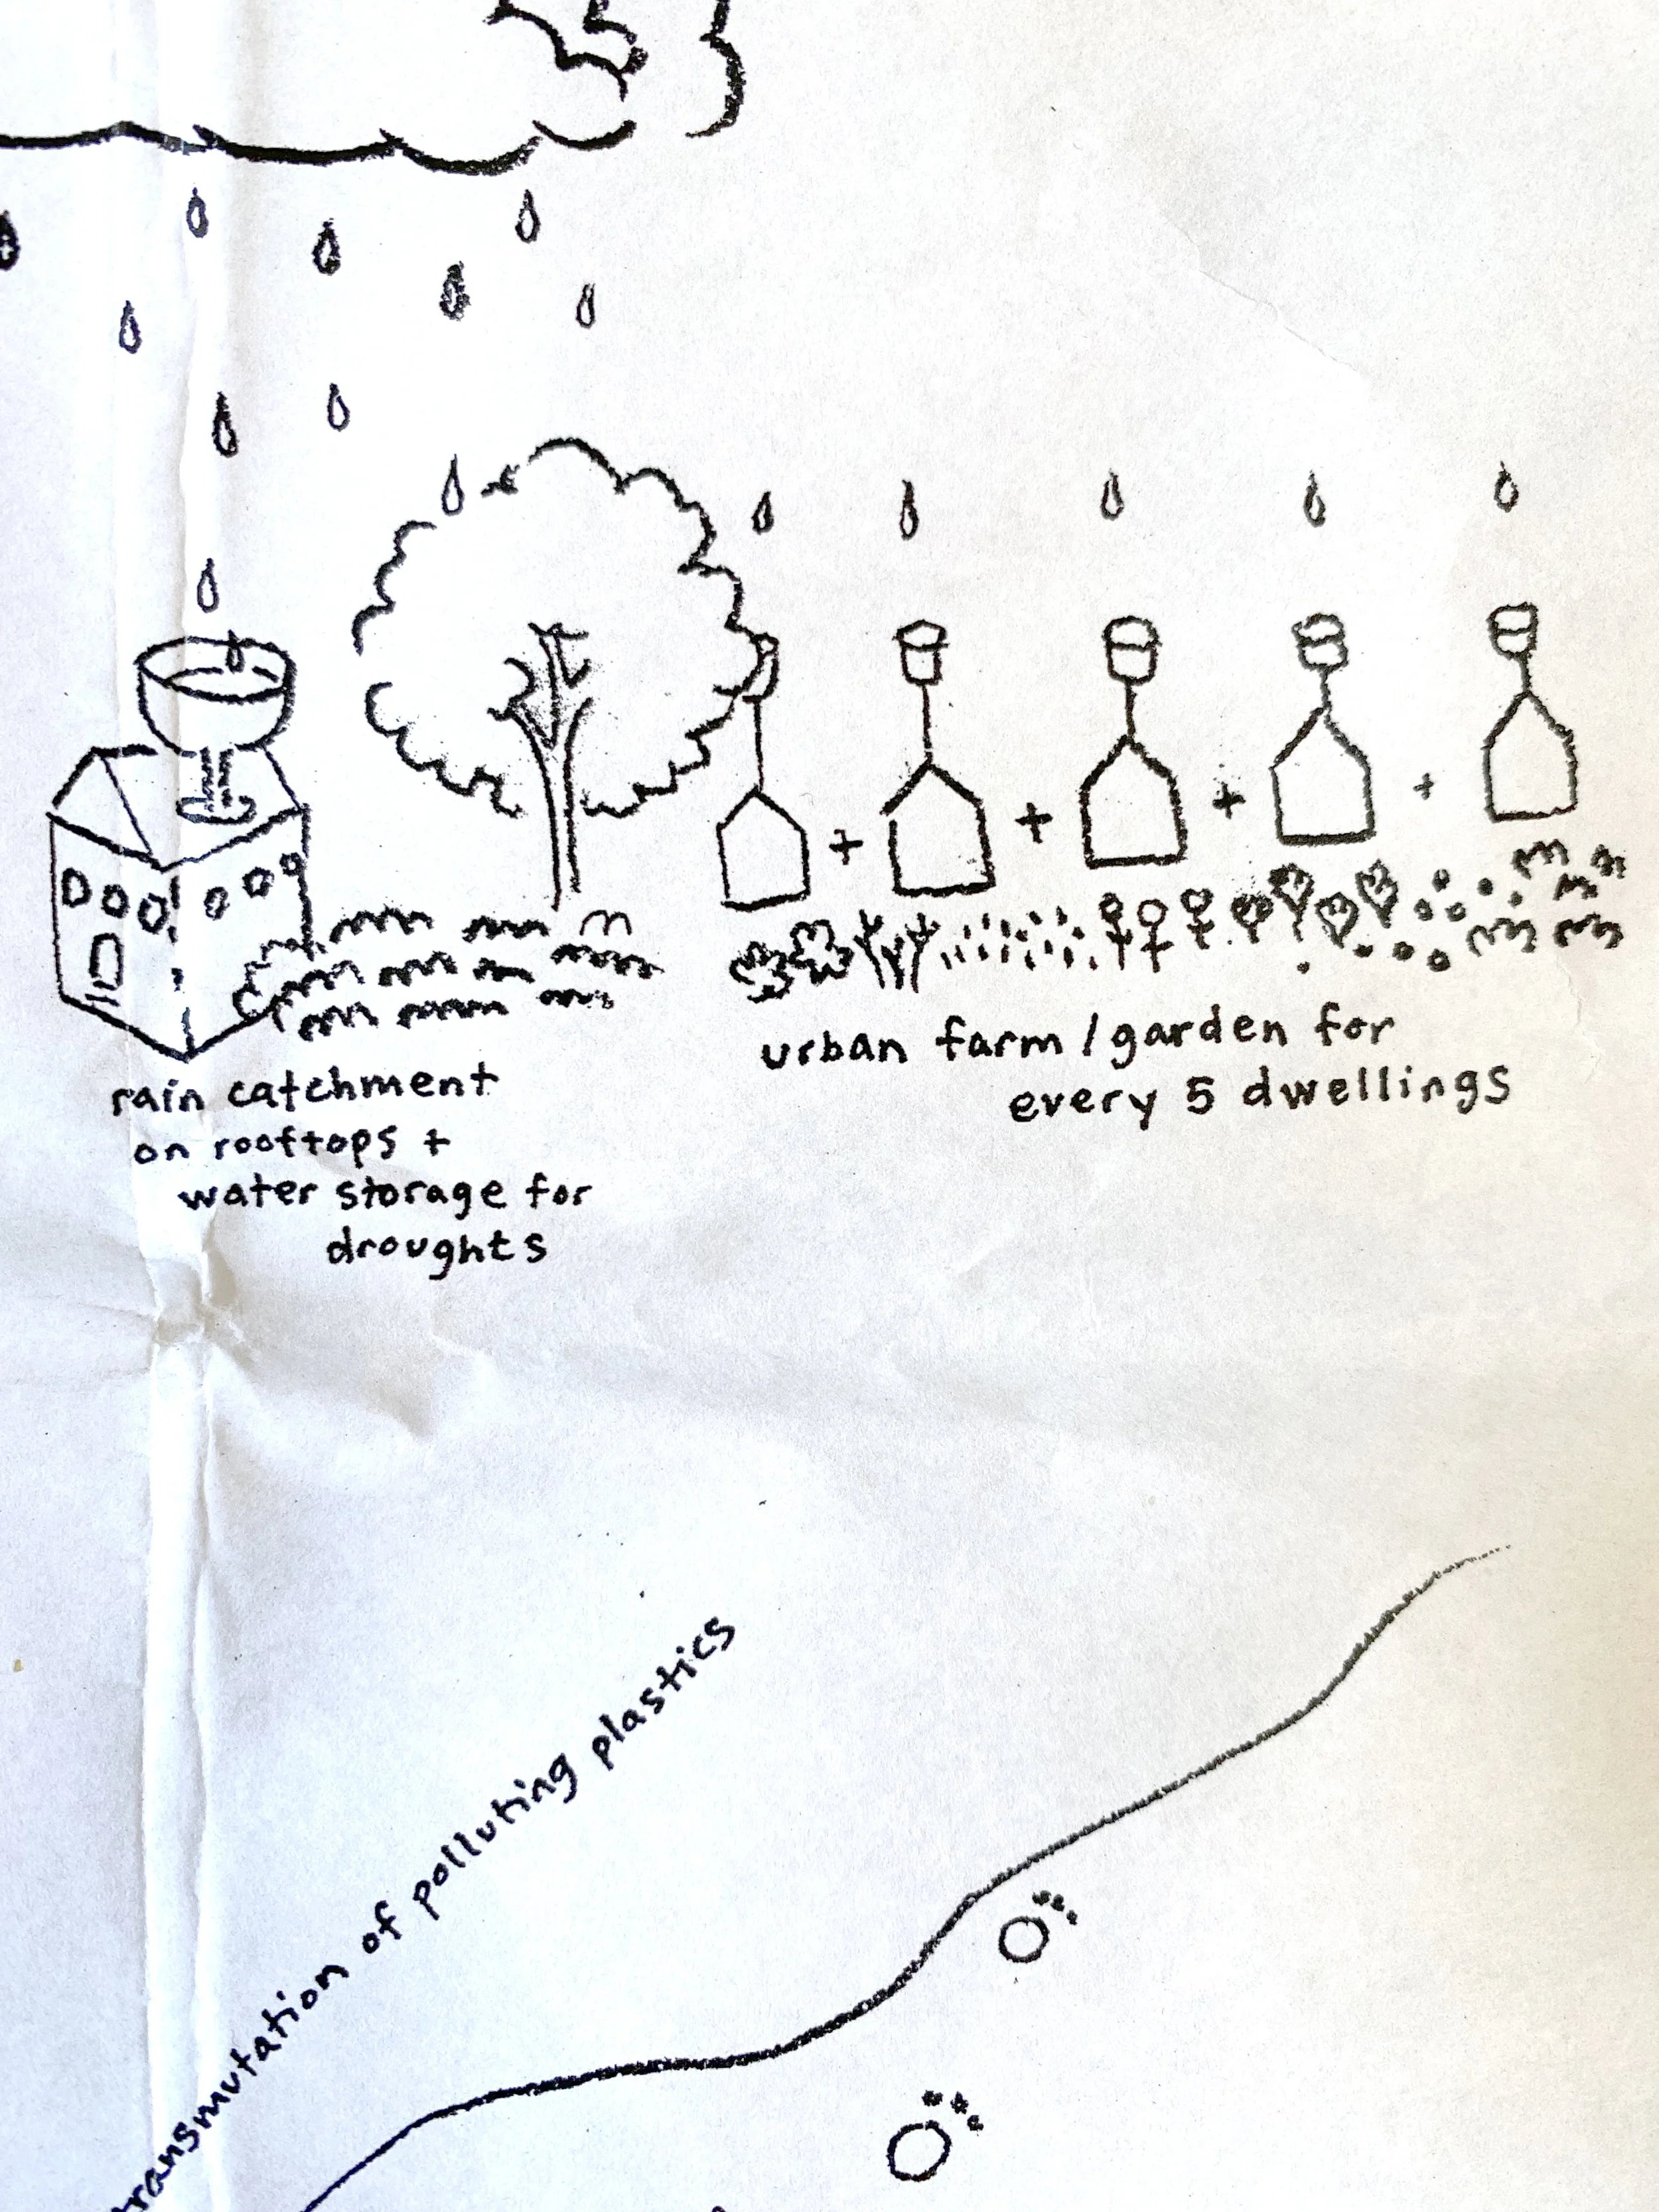 rain catchment
on rooftops +
water storage for
droughts
urban farm / garden for
every 5 dwellings
transmutation of polluting plastics